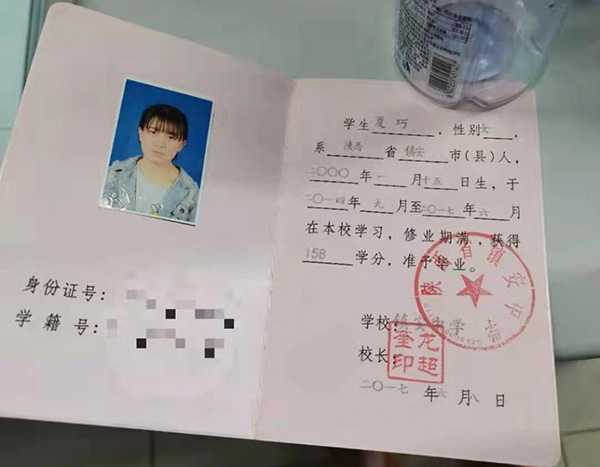 身份证号:
学 籍 号:
学生夏巧,性别女,
系陕西省镇安市(县)人,
二〇〇〇年一月十五日生,于
二〇一四年九月至二〇一七年六月
在本校学习,修业期满,获得
158学分,准予毕业。
陕西省镇安中学
学校:镇安中学
校长:
龙超奎印
二〇一七年六月八日